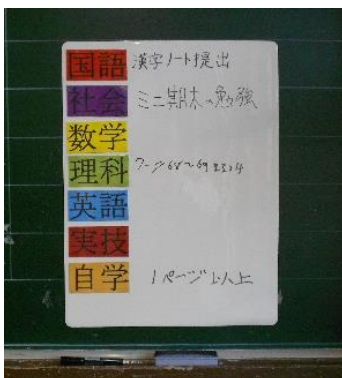 国語 漢字ノート提出
社会 ミニ期末の勉強
数学
理科 ワーク68〜69
英語
実技
自学 1ページ以上